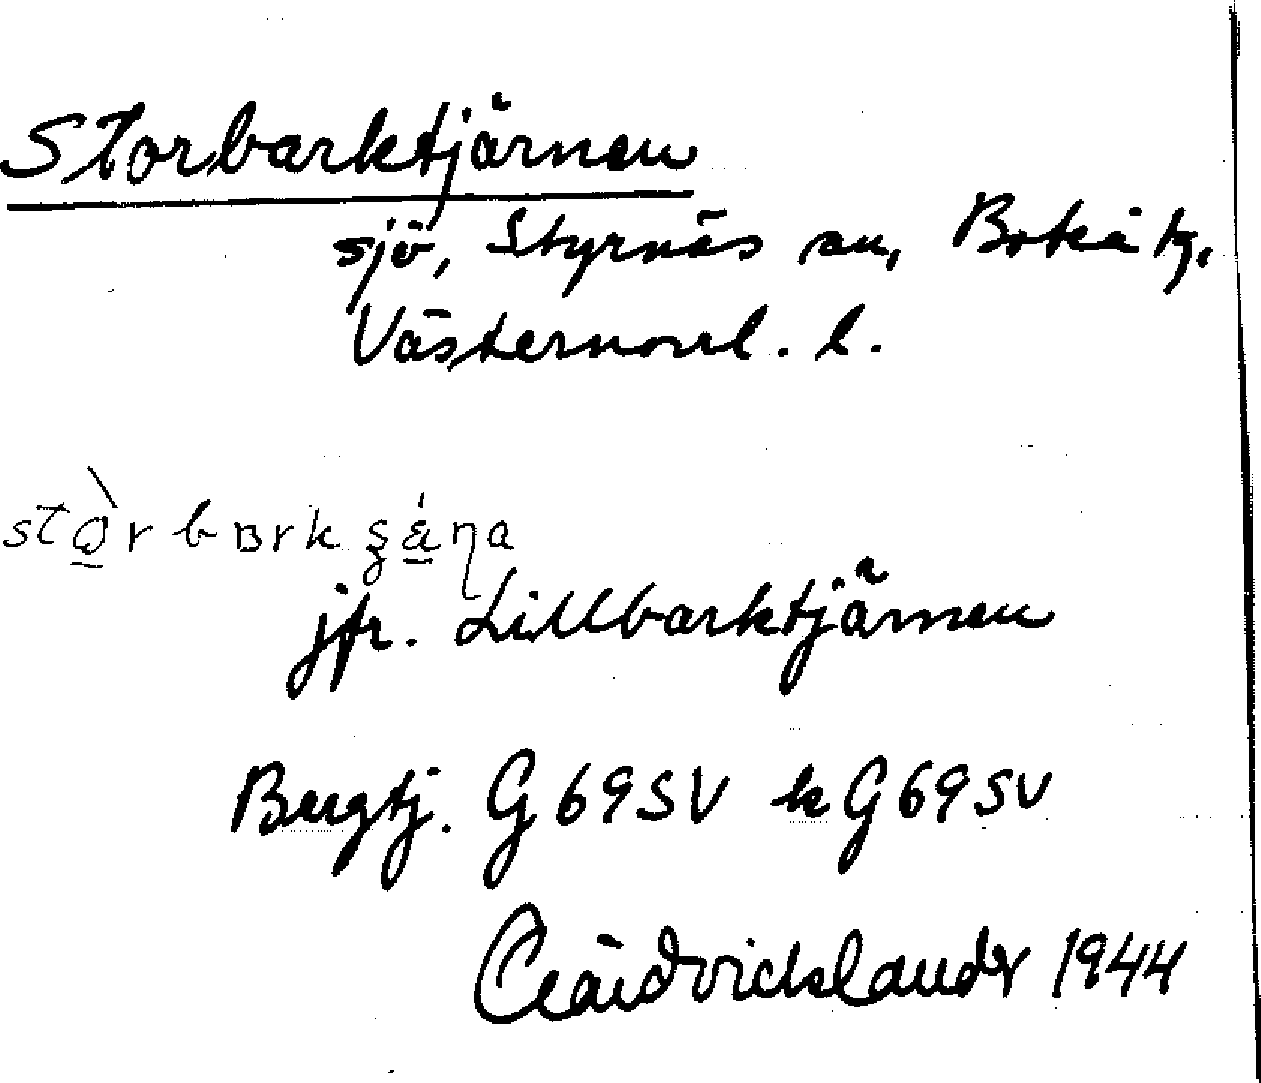 Storbarktjärnen
sjö, Styrnäs sn, Boteå tg.
Västernorrl. l.
jfr. Lillbarktjärnen
Bergtj. G69SV k G69SV
1944